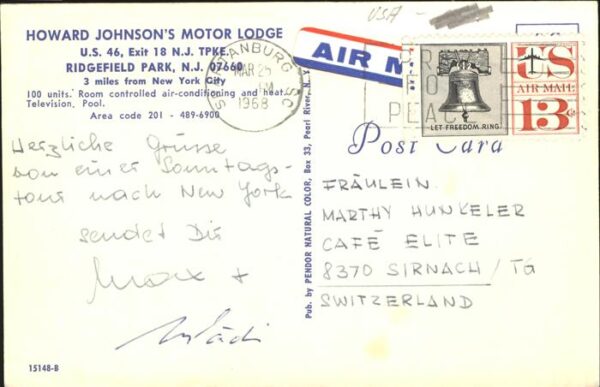 USA
HOWARD JOHNSON'S MOTOR LODGE
U.S. 46, Exit 18 N.J. TPKE.
RIDGEFIELD PARK, N.J. 07660
3 miles from New York City
100 units. Room controlled air-conditioning and heat.
Television, Pool.
Area code 201 - 489-6900
SPARTANBURG, SC
MAR 25
PM
1968
AIR M
PEAC
LET FREEDOM RING
US
AIR MAIL
13c
Post Card
Herzliche Grüsse
von einer Sonntags-
tour nach New York
sendet Dir
Max +
FRÄULEIN
MARTHY HUNKELER
CAFÉ ELITE
8370 SIRNACH / TG
SWITZERLAND
Pub. by PENDOR NATURAL COLOR, Box 33, Pearl River, N.Y.
15148-B